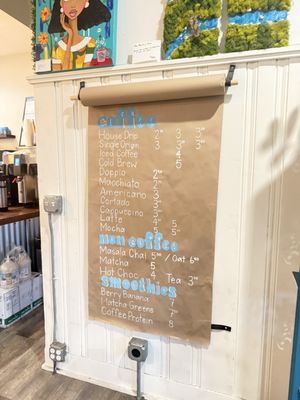 coffee
House Drip 2 3 3
Single Origin 3 3 3
Iced Coffee 4
Cold Brew 5
Doppio 2
Macchiato 2
Americano 3
Cortado 3
Cappuccino 3
Latte 4 5
Mocha 5 5
non coffee
Masala Chai 5 / Oat 6
Matcha 5
Hot Choc 4 Tea 3
Smoothies
Berry Banana 7
Matcha Greens 7
Coffee Protein 8